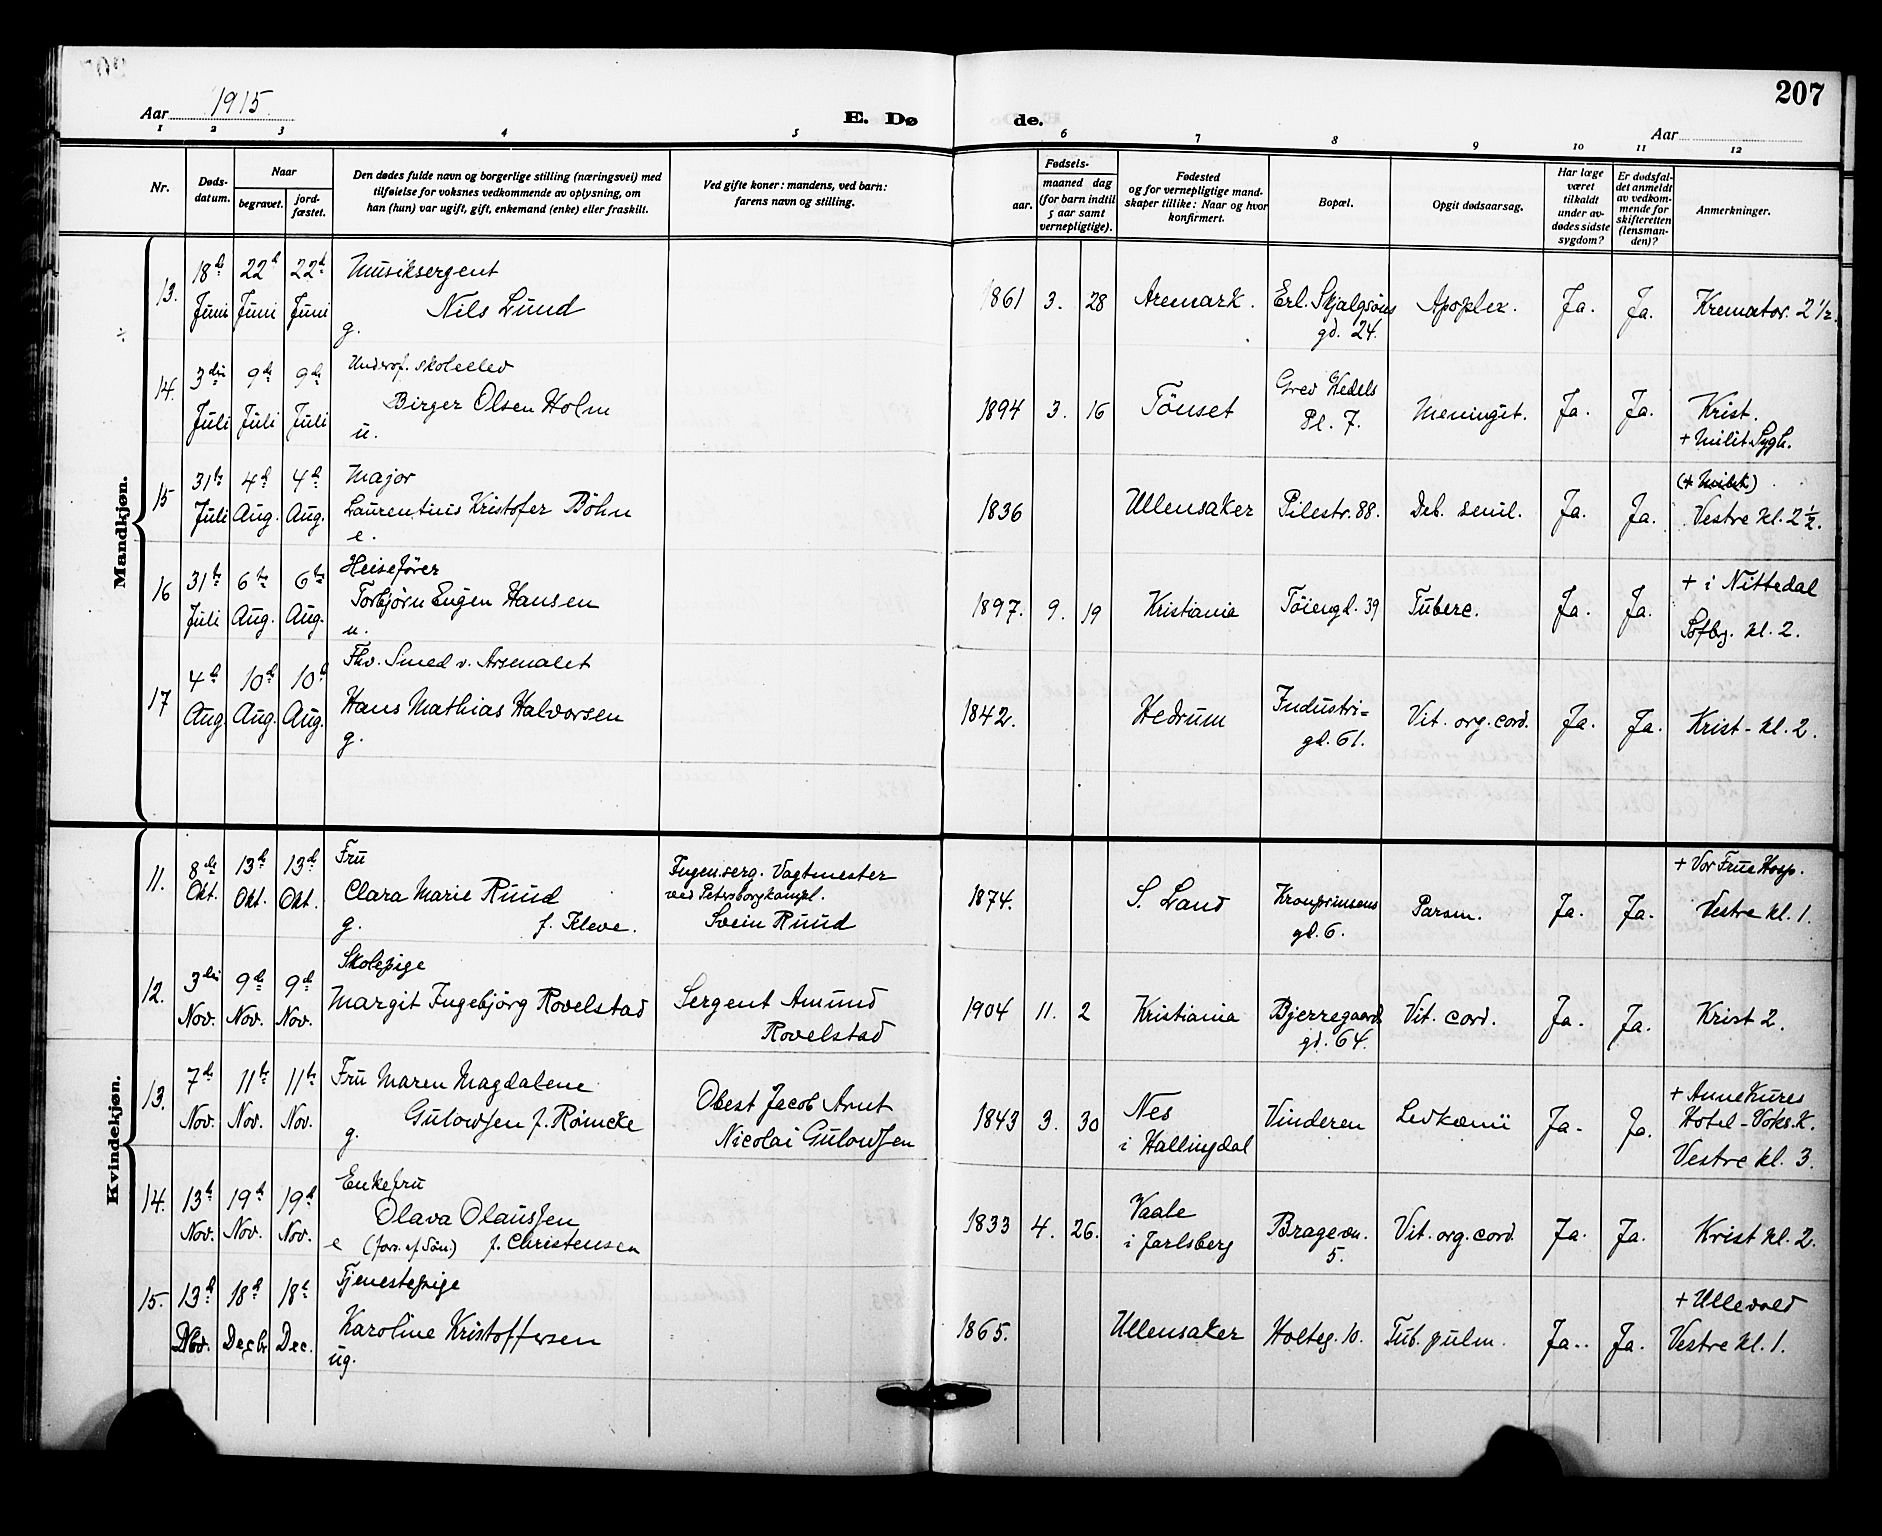 207
Aar 1915.
E. Dø de.
Aar
1 2 3 4 5 6 7 8 9 10 11 12
Nr.
Døds-
datum.
Naar
begravet.
jord-
fæstet.
Den dødes fulde navn og borgerlige stilling (næringsvei) med
tilføielse for voksnes vedkommende av oplysning, om
han (hun) var ugift, gift, enkemand (enke) eller fraskilt.
Ved gifte koner: mandens, ved barn:
farens navn og stilling.
Fødsels-
aar.
maaned dag
(for barn indtil
5 aar samt
vernepligtige).
Fødested
og for vernepligtige mand-
skaper tillike: Naar og hvor
konfirmert.
Bopæl.
Opgit dødsaarsag.
Har læge
været
tilkaldt
under av-
dødes sidste
sygdom?
Er dødsfal-
det anmeldt
av vedkom-
mende for
skifteretten
(lensman-
den)?
Anmerkninger.
Mandkjøn.
13. 18d Juni 22d Juni 22d Juni
Musiksergent
Nils Lund
g.
1861 3. 28 Aremark. Erl. Skjalgsøns
gd. 24. Apoplex. Ja. Ja. Kremator. 2 1/2.
14. 3die Juli 9de Juli 9de Juli
Underof. skoleelev
Birger Olsen Holm
u.
1894 3. 16 Tönset Grev Wedels
Pl. 7. Meningit. Ja. Ja. Krist.
+ Milit Sygh.
15 31te Juli 4d Aug. 4d Aug.
Major
Laurentius Kristofer Böhn
e.
1836 Ullensaker Pilestr. 88. Deb. senil. Ja. Ja. Vestre kl. 2 1/2.
16 31te Juli 6te Aug. 6te Aug.
Heisefører
Torbjørn Eugen Hansen
u.
1897. 9. 19 Kristiania Töiengd. 39 Tuberc. Ja. Ja. + i Nittedal
Sofbg. kl. 2.
17 4d Aug. 10d Aug. 10d Aug.
Fhv. Smed v. Arsenalet
Hans Mathias Halvorsen
g.
1842. Hedrum Industri=
gd. 61. Vit. org. cord. Ja. Ja. Krist - kl. 2.
Kvindekjøn.
11. 8de Okt. 13d Okt. 13d Okt.
Fru
Clara Marie Ruud
g. f. Kleve.
Ingen.serg. Vagtmester
ved Petersborgkompl.
Svein Ruud
1874. S. Land Kronprinsens
gd. 6. Parsm. Ja. Ja. + Vor Frue Hosp.
Vestre kl. 1.
12. 3die Nov. 9de Nov. 9d Nov.
Skolepige
Margit Ingebjörg Rovelstad
Sergent Amund
Rovelstad
1904 11. 2 Kristiania Bjerregaards
gd. 64. Vit. cord. Ja. Ja. Krist 2.
13. 7d Nov. 11te Nov. 11te Nov.
Fru Maren Magdalene
Gulowsen f. Römcke
g.
Obest Jacob Arnt
Nicolai Gulowsen
1843 3. 30 Nes
i Hallingdal Vinderen Levkæmi Ja. Ja. + Anne Kures
Hotel - Voks.K.
Vestre kl. 3.
14. 13d Nov. 19d Nov. 19d Nov.
Enkefru
Olava Olaussen
e (fors. af Søn.) f. Christensen
1833 4. 26. Vaale
i Jarlsberg Bragevn.
5. Vit. org. cord Ja. Ja. Krist kl. 2.
15. 13d 18d Decbr 18d Dec.
Tjenestepige
Karoline Kristoffersen
ug.
1865. Ullensaker Holteg. 10. Tub. pulm. Ja.. Ja. + Ullevold
Vestre kl. 1.